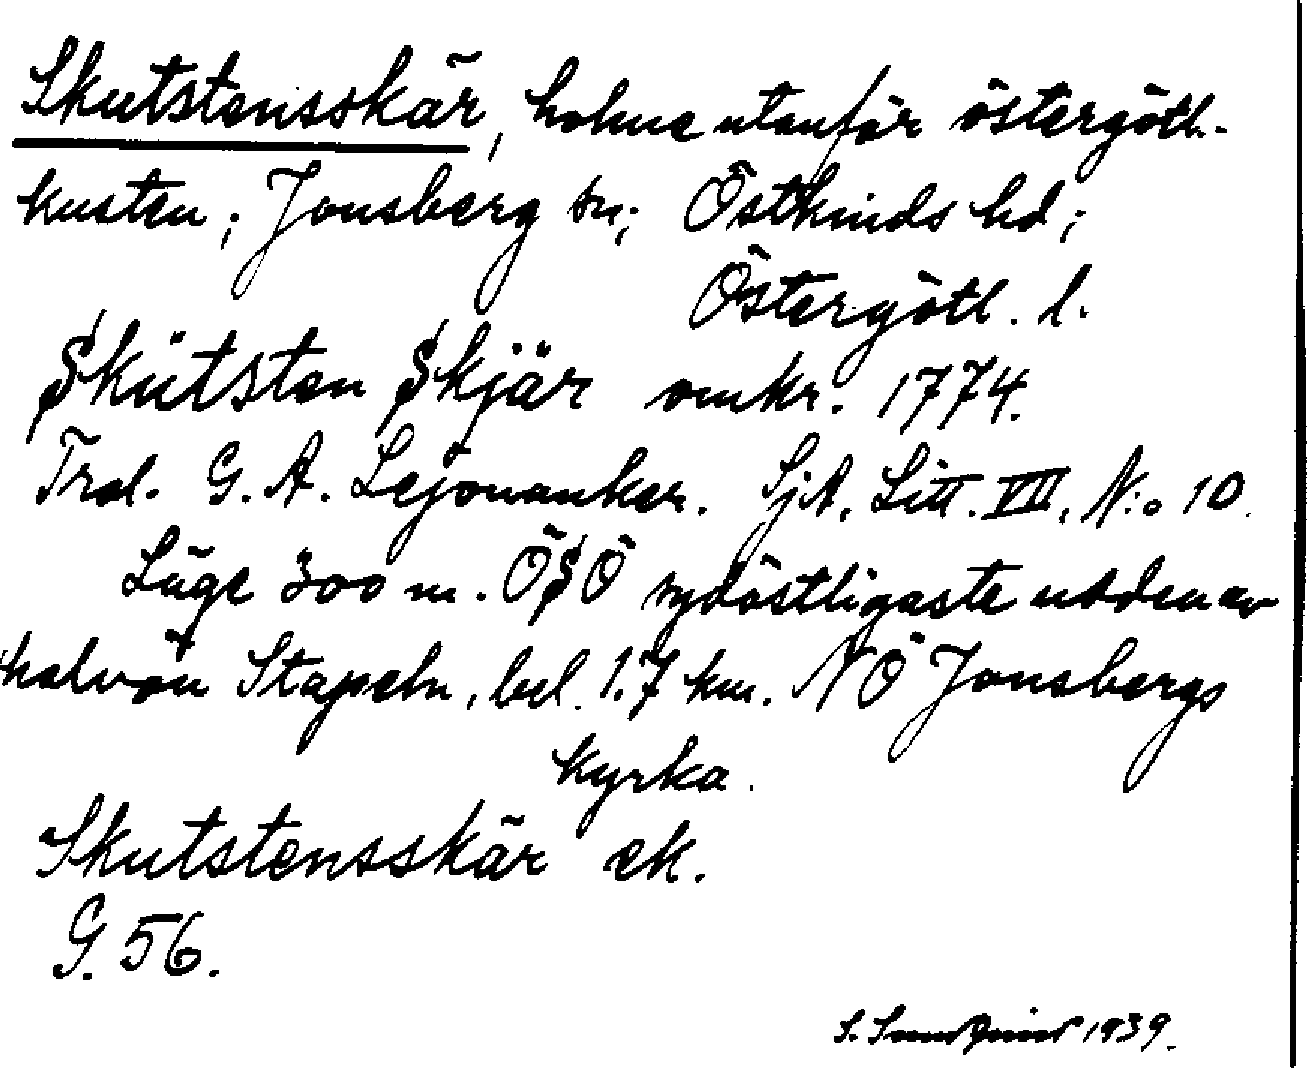 Skutstensskär, holme utanför östergötl.
kusten; Jonsberg sn; Östkinds hd;
Östergötl. l.
Skutsten Skjär omkr. 1774.
Trol. G. A. Lejonanker. SjA. Litt. VII. N:o 10.
Läge 300 m. ÖSÖ sydöstligaste udden av
halvön Stapeln, bel. 1.7 km. NÖ Jonsbergs
kyrka.
Skutstensskär ek.
G. 56.
S. 1939.